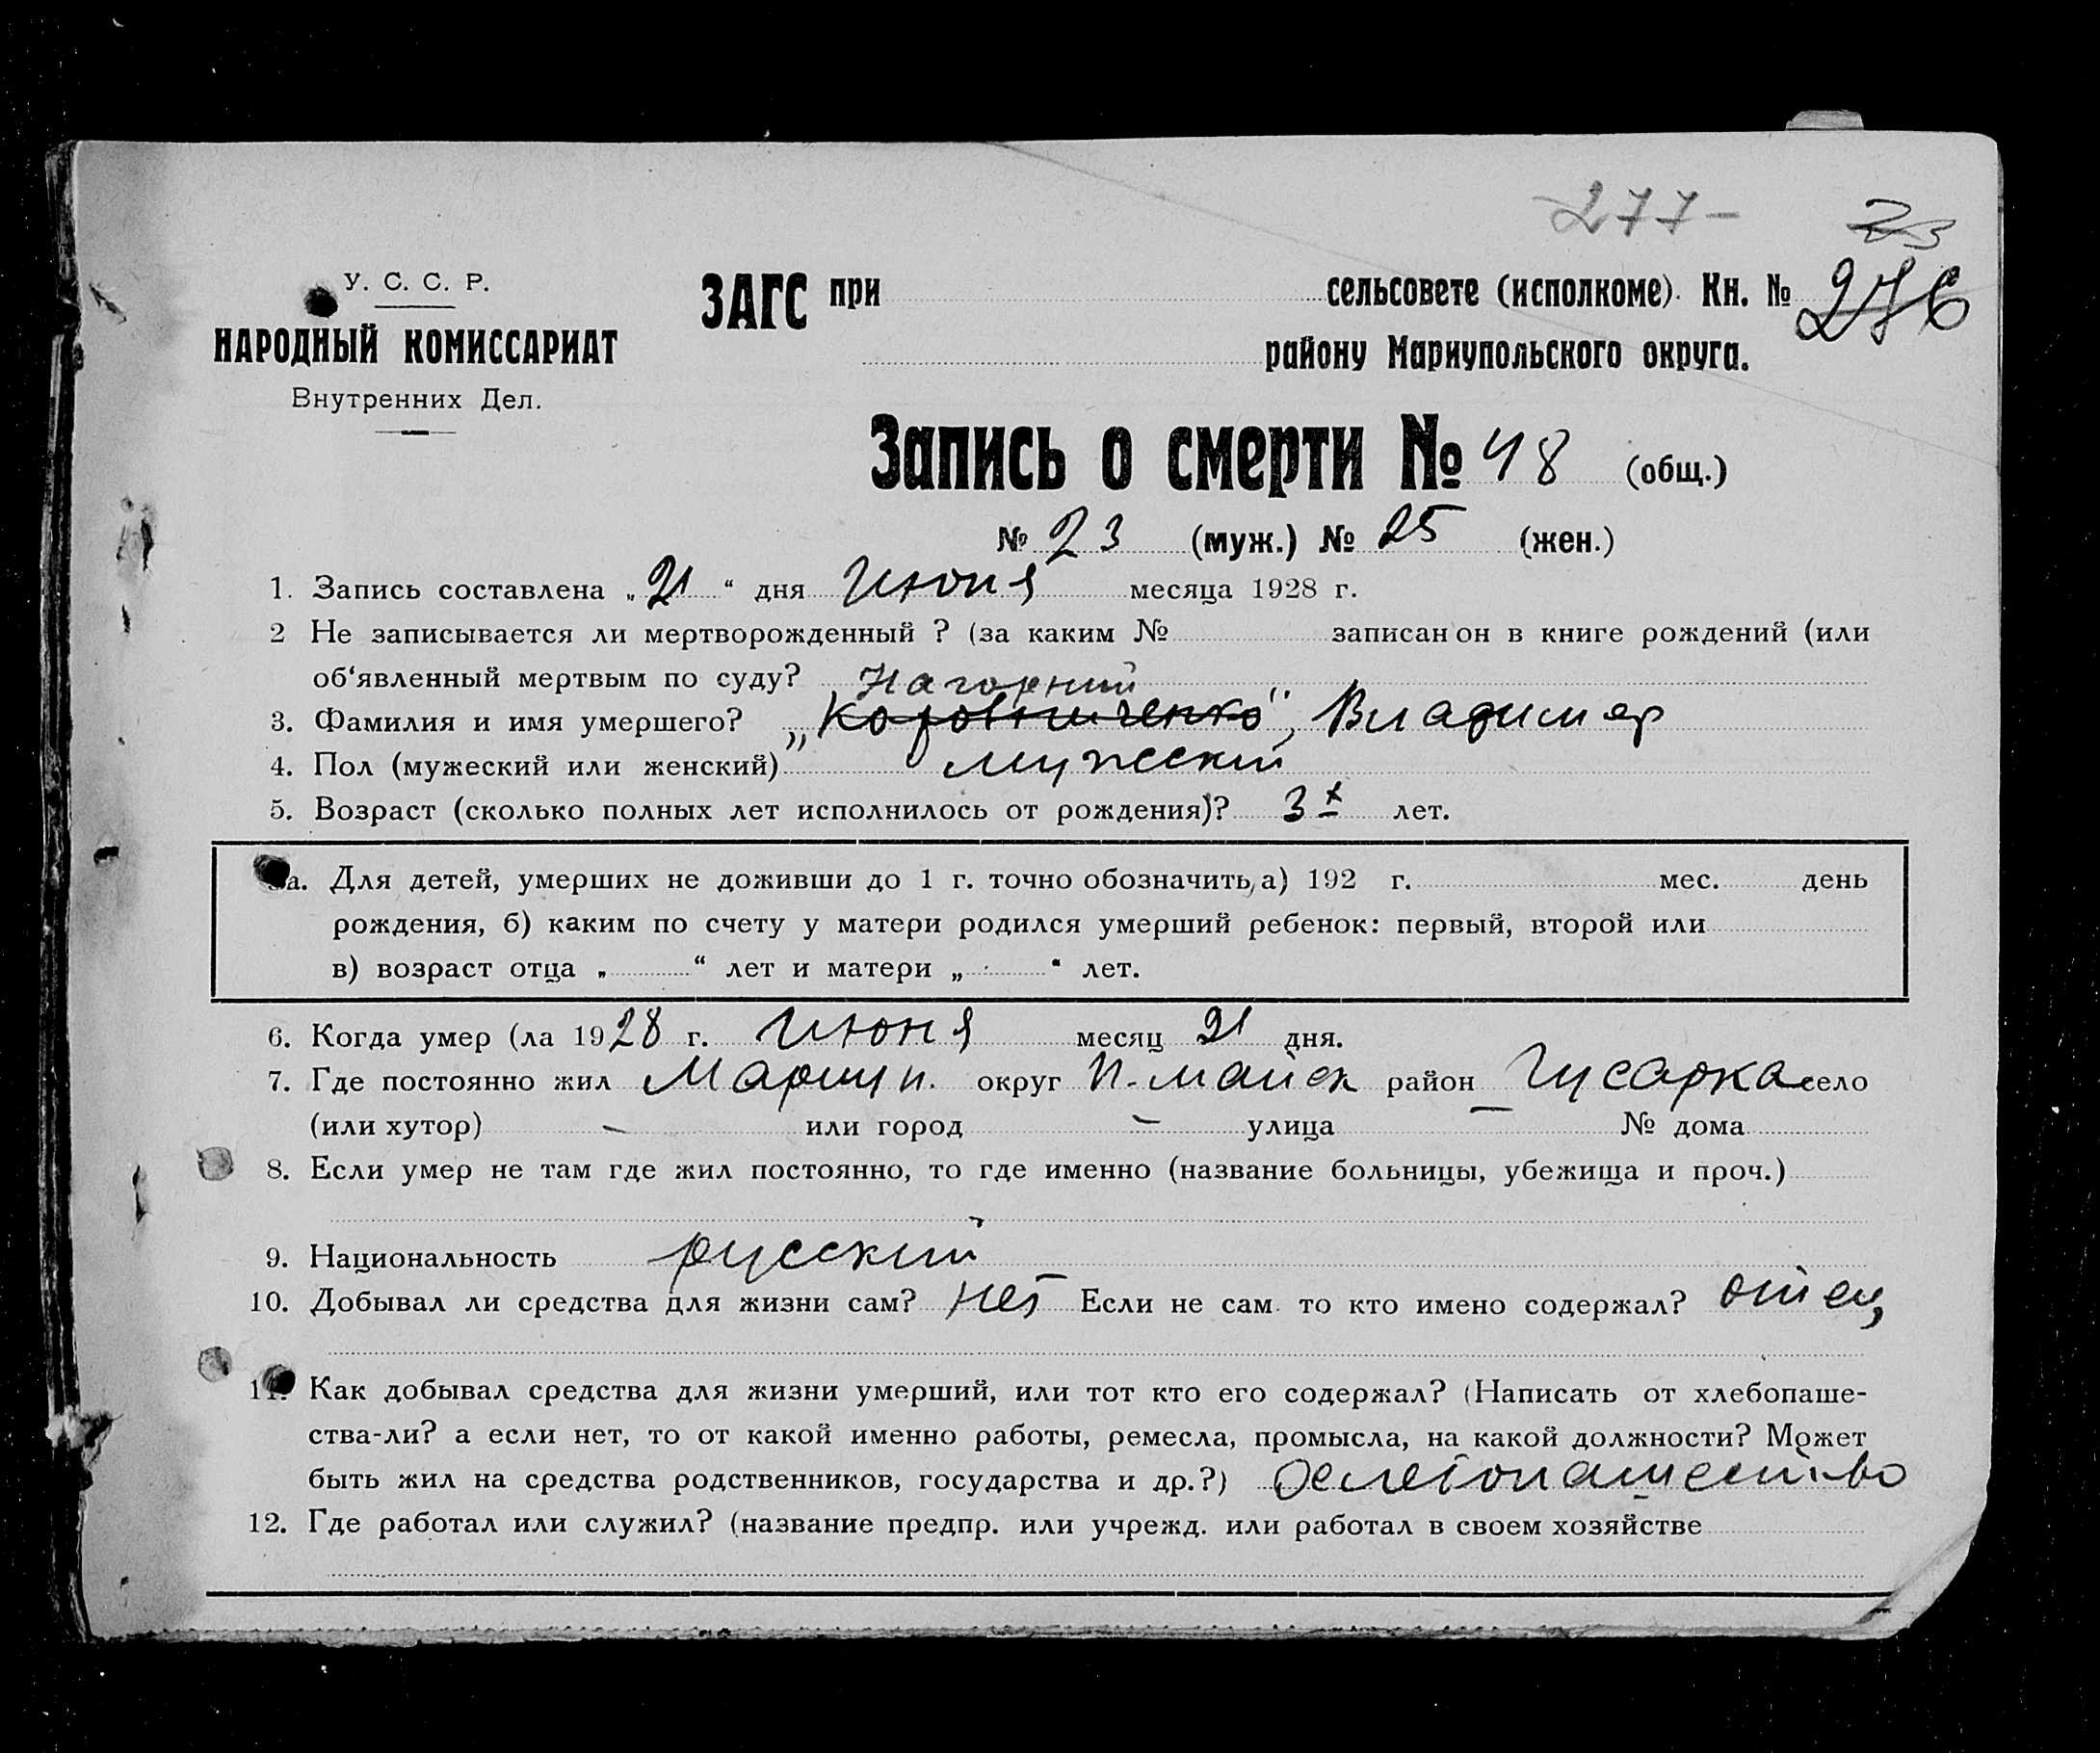 277-
23
У. С. С. Р.
ЗАГС при сельсовете (исполкоме). Кн. № 276
НАРОДНЫЙ КОМИССАРИАТ
району Мариупольского округа.
Внутренних Дел.
Запись о смерти № 48 (общ.)
№ 23 (муж.) № 25 (жен.)
1. Запись составлена „21“ дня Июня месяца 1928 г.
2 Не записывается ли мертворожденный ? (за каким № записан он в книге рождений (или
об‘явленный мертвым по суду?
Нагорний
3. Фамилия и имя умершего? Владимер
4. Пол (мужеский или женский) мужеский
5. Возраст (сколько полных лет исполнилось от рождения)? 3х лет.
а. Для детей, умерших не доживши до 1 г. точно обозначить, а) 192 г. мес. день
рождения, б) каким по счету у матери родился умерший ребенок: первый, второй или
в) возраст отца „ “ лет и матери „ “ лет.
6. Когда умер (ла 1928 г. Июня месяц 21 дня.
7. Где постоянно жил Мариуп. округ П.-майск район Гусарка село
(или хутор) – или город – улица – № дома
8. Если умер не там где жил постоянно, то где именно (название больницы, убежища и проч.)
9. Национальность русский
10. Добывал ли средства для жизни сам? нет Если не сам то кто имено содержал? отец
11. Как добывал средства для жизни умерший, или тот кто его содержал? (Написать от хлебопаше-
ства-ли? а если нет, то от какой именно работы, ремесла, промысла, на какой должности? Может
быть жил на средства родственников, государства и др.?)
12. Где работал или служил? (название предпр. или учрежд. или работал в своем хозяйстве